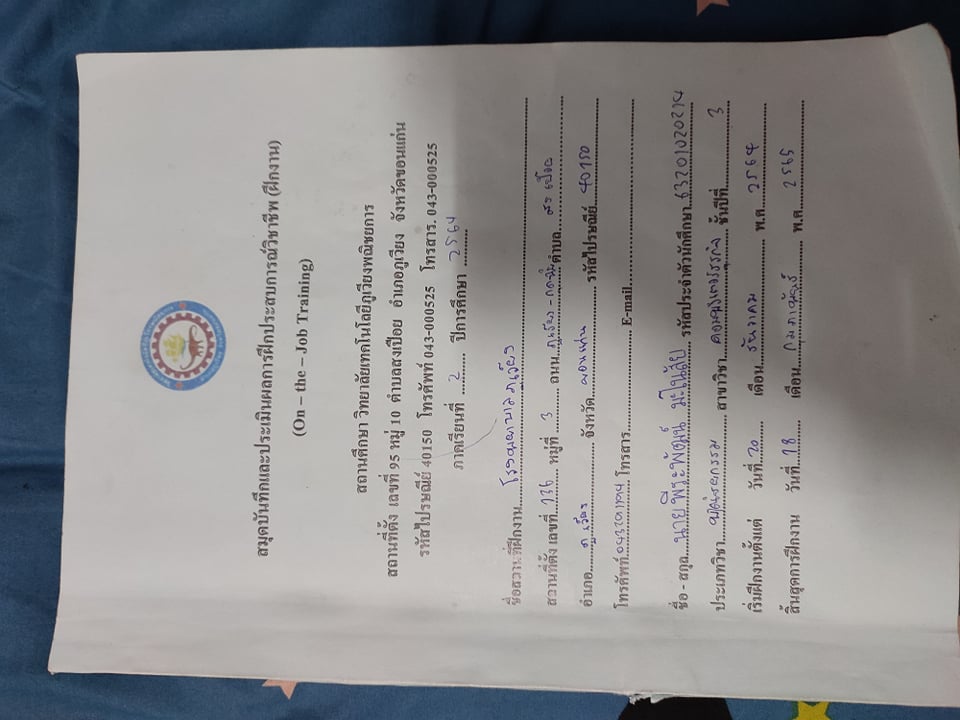 สมุดบันทึกและประเมินผลการฝึกประสบการณ์วิชาชีพ (ฝึกงาน)
(On – the – Job Training)
สถานศึกษา วิทยาลัยเทคโนโลยีภูเวียงพณิชยการ
สถานที่ตั้ง เลขที่ 95 หมู่ 10 ตำบลสงเปือย อำเภอภูเวียง จังหวัดขอนแก่น
รหัสไปรษณีย์ 40150 โทรศัพท์ 043-000525 โทรสาร. 043-000525
ภาคเรียนที่ 2 ปีการศึกษา 2564
ชื่อสถานที่ฝึกงาน โรงพยาบาลภูเวียง
สถานที่ตั้ง เลขที่ 136 หมู่ที่ 3 ถนน ภูเวียง - ตำบล
อำเภอ ภูเวียง จังหวัด ขอนแก่น รหัสไปรษณีย์ 40150
โทรศัพท์ โทรสาร E-mail
ชื่อ - สกุล นาย พีระพัฒน์ รหัสประจำตัวนักศึกษา 63201020214
ประเภทวิชา สาขาวิชา คอมพิวเตอร์ธุรกิจ ชั้นปีที่ 3
เริ่มฝึกงานตั้งแต่ วันที่ 20 เดือน ธันวาคม พ.ศ. 2564
สิ้นสุดการฝึกงาน วันที่ 18 เดือน กุมภาพันธ์ พ.ศ. 2565